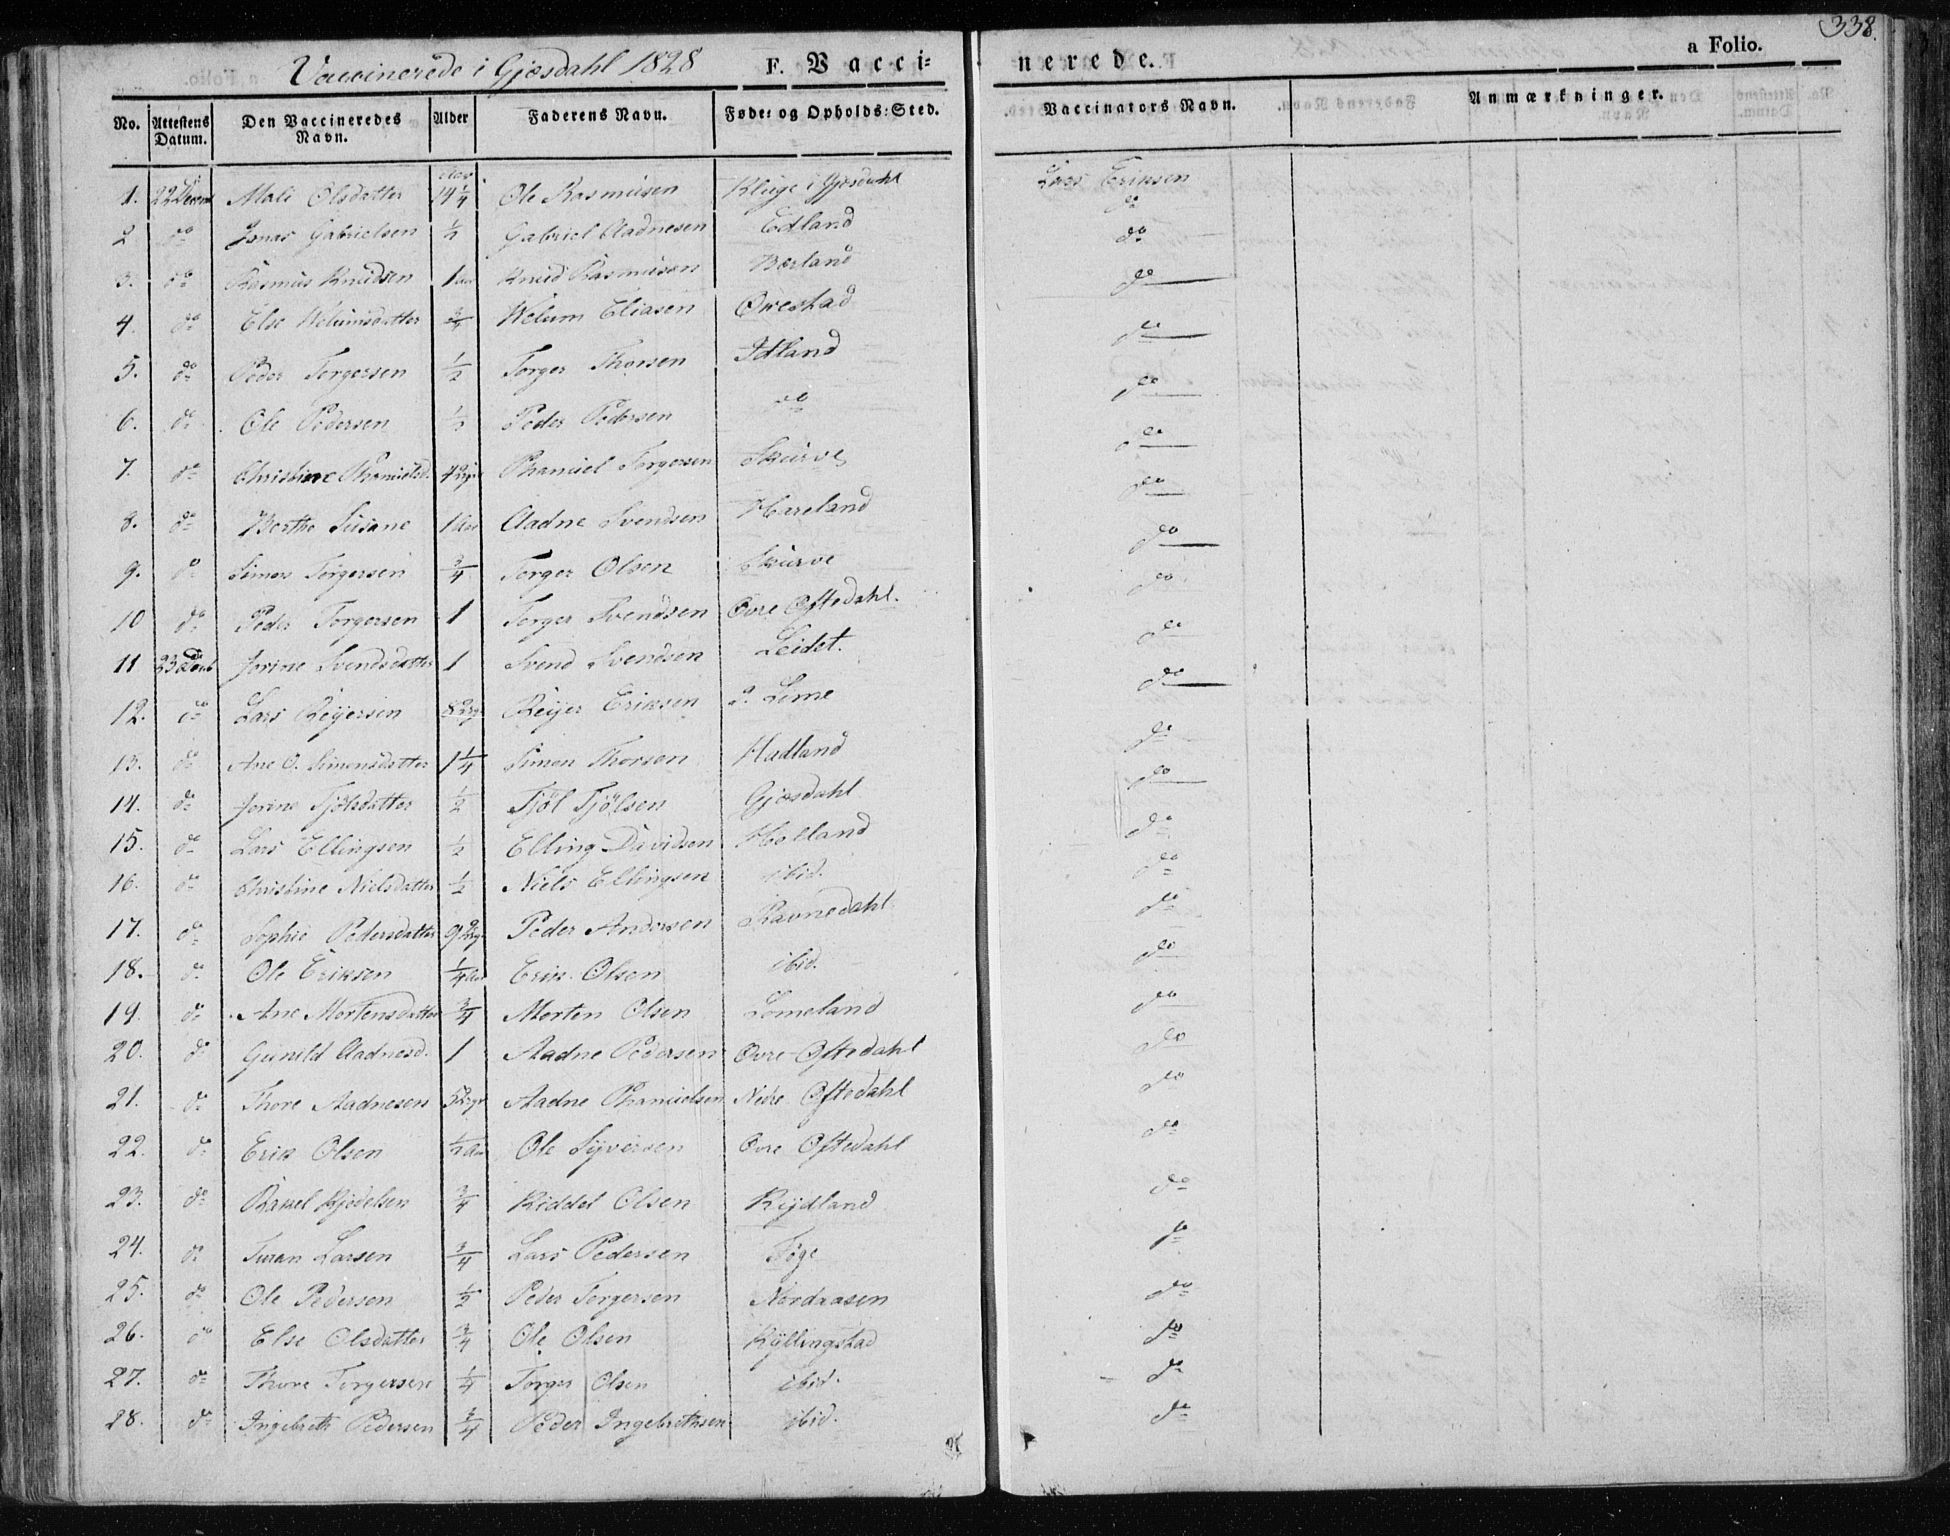 338.
Vaccinerede i Gjesdahl 1828 F. Vacci= nerede. a Folio.
No. Attestens Datum. Den Vaccineredes Navn. Alder Faderens Navn. Føde= og Opholds=Sted. Vaccinators Navn. Anmærkninger.
1. 22 Decem Mali Olsdatter Aar 14 1/4 Ole Rasmusen Kluge i Gjesdahl Lars Eriksen
2 do Jonas Gabrielsen 1/2 Gabriel Aadnesen Edland do
3. do Rasmus Knudsen 1 aar Knud Rasmusen Bærland do
4. do Else Welumsdatter 3/4 Welum Eliasen Ørestad do
5. do Peder Torgersen 1/2 Torger Thorsen Idland do
6. do Ole Pedersen 1/2 Peder Pedersen do do
7. do Christine Phanuelsd. 4 Phanuel Torgersen Skurve do
8. do Berthe Susane 1 Aar Aadne Svendsen Hareland do
9. do Simon Torgersen 3/4 Torger Olsen Skurve do
10 do Peder Torgersen 1 Torger Svendsen Øvre Oftedahl. do
11 23 Decmb Jorine Svendsdatter 1 Svend Svendsen Leidet. do
12. do Lars Reijersen 8 Reijer Eriksen Lime do
13. do Ane O. Simonsdatter 1 1/4 Simon Thorsen Hadland do
14. do Jorine Tjölsdatter 1/2 Tjöl Tjölsen Gjesdahl do
15. do Lars Ellingsen 1/2 Elling Davidsen Holland do
16. do Christine Nielsdatter 1/2 Niels Ellingsen ibid. do
17. do Sophie Pedersdatter 9 Peder Andersen Ravnedahl do
18. do Ole Eriksen 1/4 Aar Erik Olsen ibid. do
19. do Ane Mortensdatter 3/4 Morten Olsen Lomeland do
20. do Gunild Aadnesd. 1 Aadne Pedersen Øvre Oftedahl do
21. do Thore Aadnesen 5 Aadne Phanuelsen Nedre Oftedahl do
22. do Erik Olsen 1/2 Aar Ole Sijversen Øvre Oftedahl do
23. do Rakel Kjedelsen 3/4 Kiddel Olsen Rijdland do
24. do Svan Larsen 3/4 Lars Pedersen Föge do
25. do Ole Pedersen 1/2 Peder Torgersen Nordaasen do
26. do Else Olsdatter 3/4 Ole Olsen Kÿllingstad do
27. do Thore Torgersen 1/4 Torger Olsen ibid. do
28. do Ingebreth Pedersen 3/4 Peder Ingebrethsen ibid. do